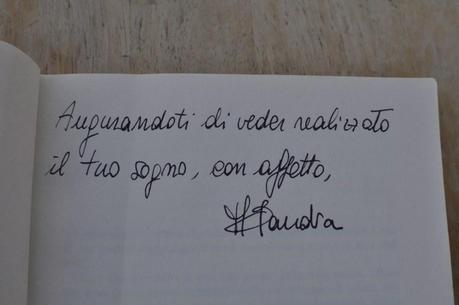 Augurandoti di veder realizzato
il tuo sogno, con affetto,
Sandra